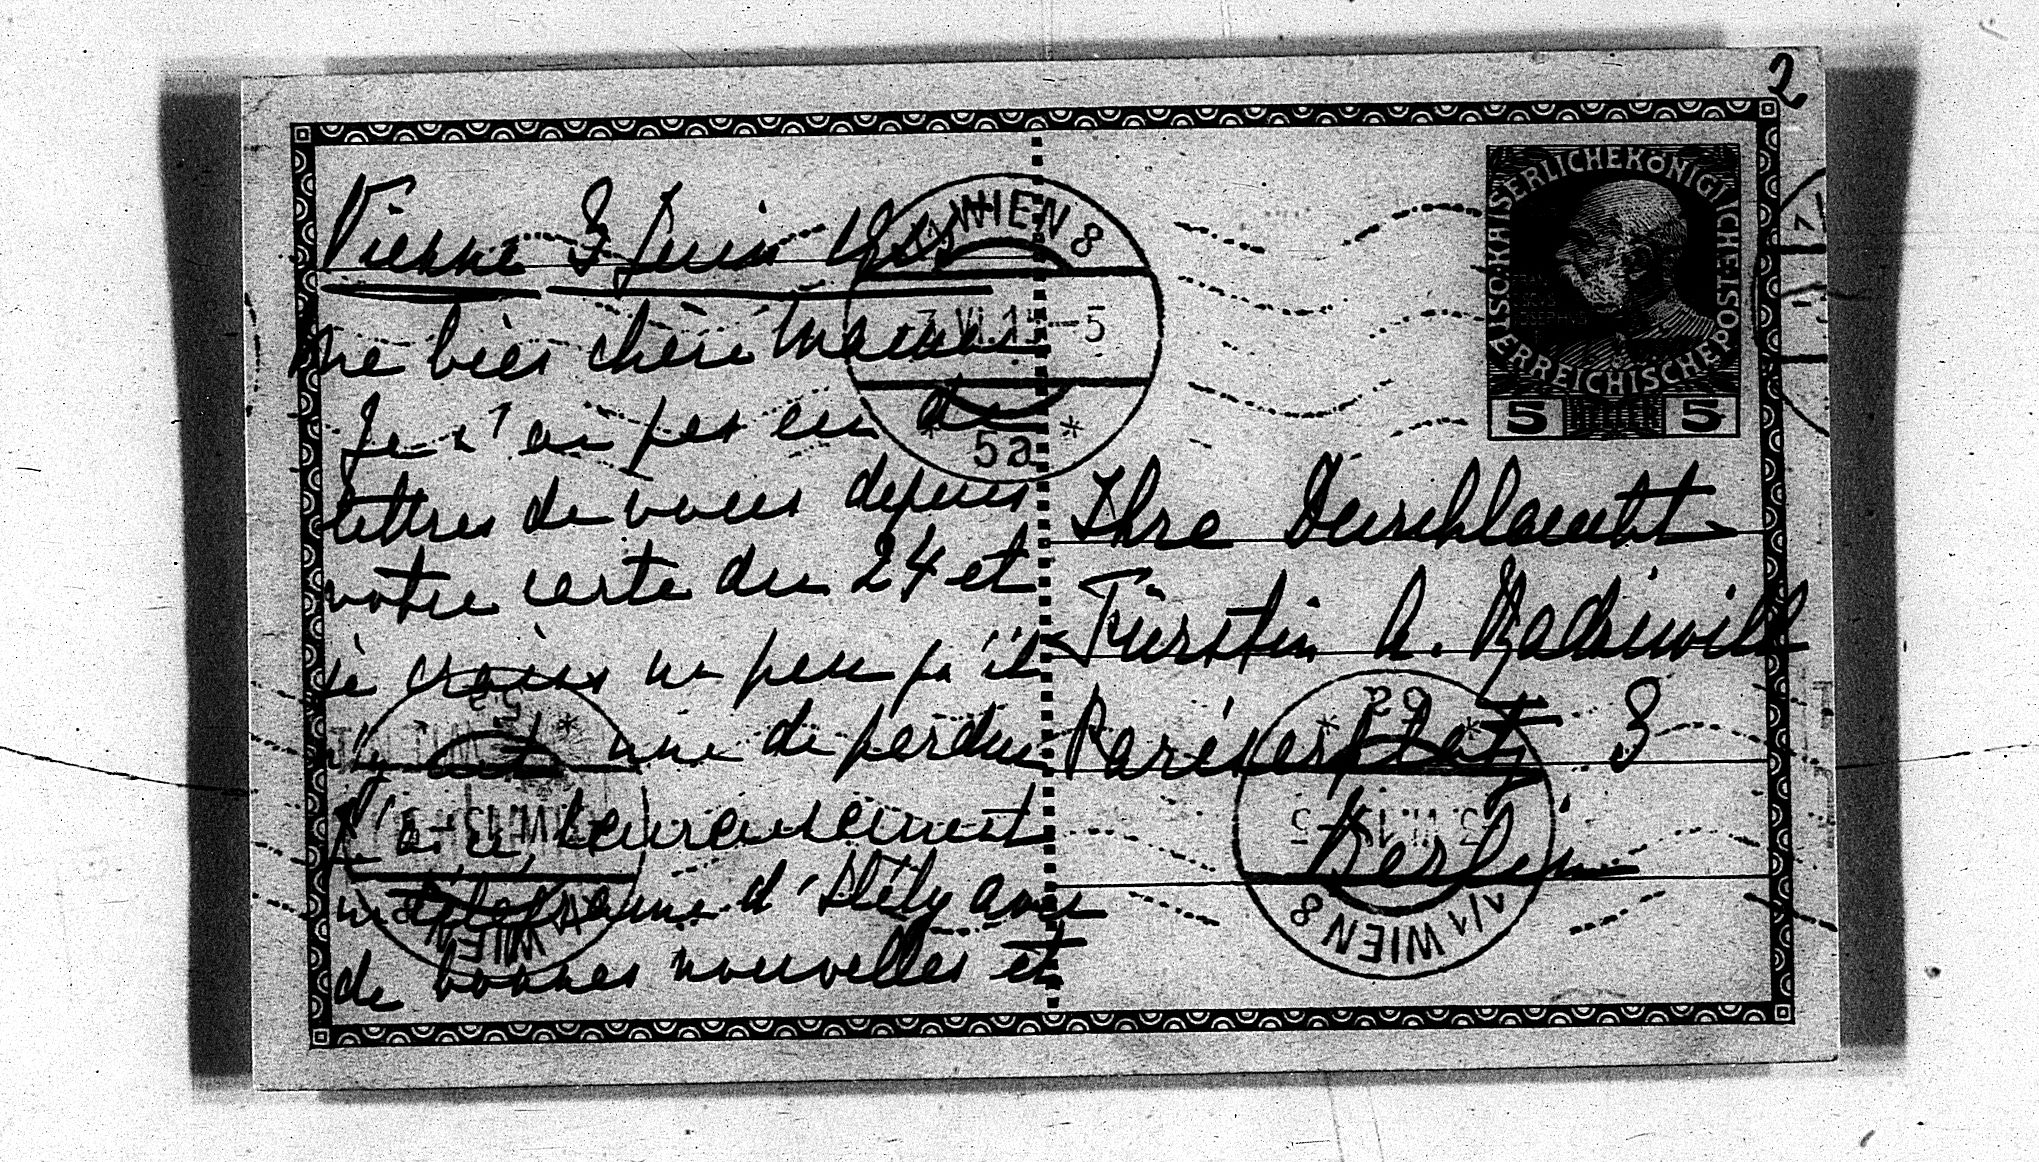 2
Vienne 3 Juin 1915
Ma bien chère Maman
Je n'ai pas eu de
lettres de vous depuis
votre carte du 24 et
je crains un peu qu'il
n'y ait une de perdue
J'ai heureusement
un télégramme d'Ellély avec
de bonnes nouvelles et
WIEN 8
3.VI.15-5
* 5a *
KAISERLICHE KÖNIGLICHE ÖSTERREICHISCHE POST
5 HELLER 5
Ihre Durchlaucht
Fürstin A. Radziwill
Pariserplatz 3
Berlin
* 5a *
3.VI.15-5
1/1 WIEN 8
WIEN